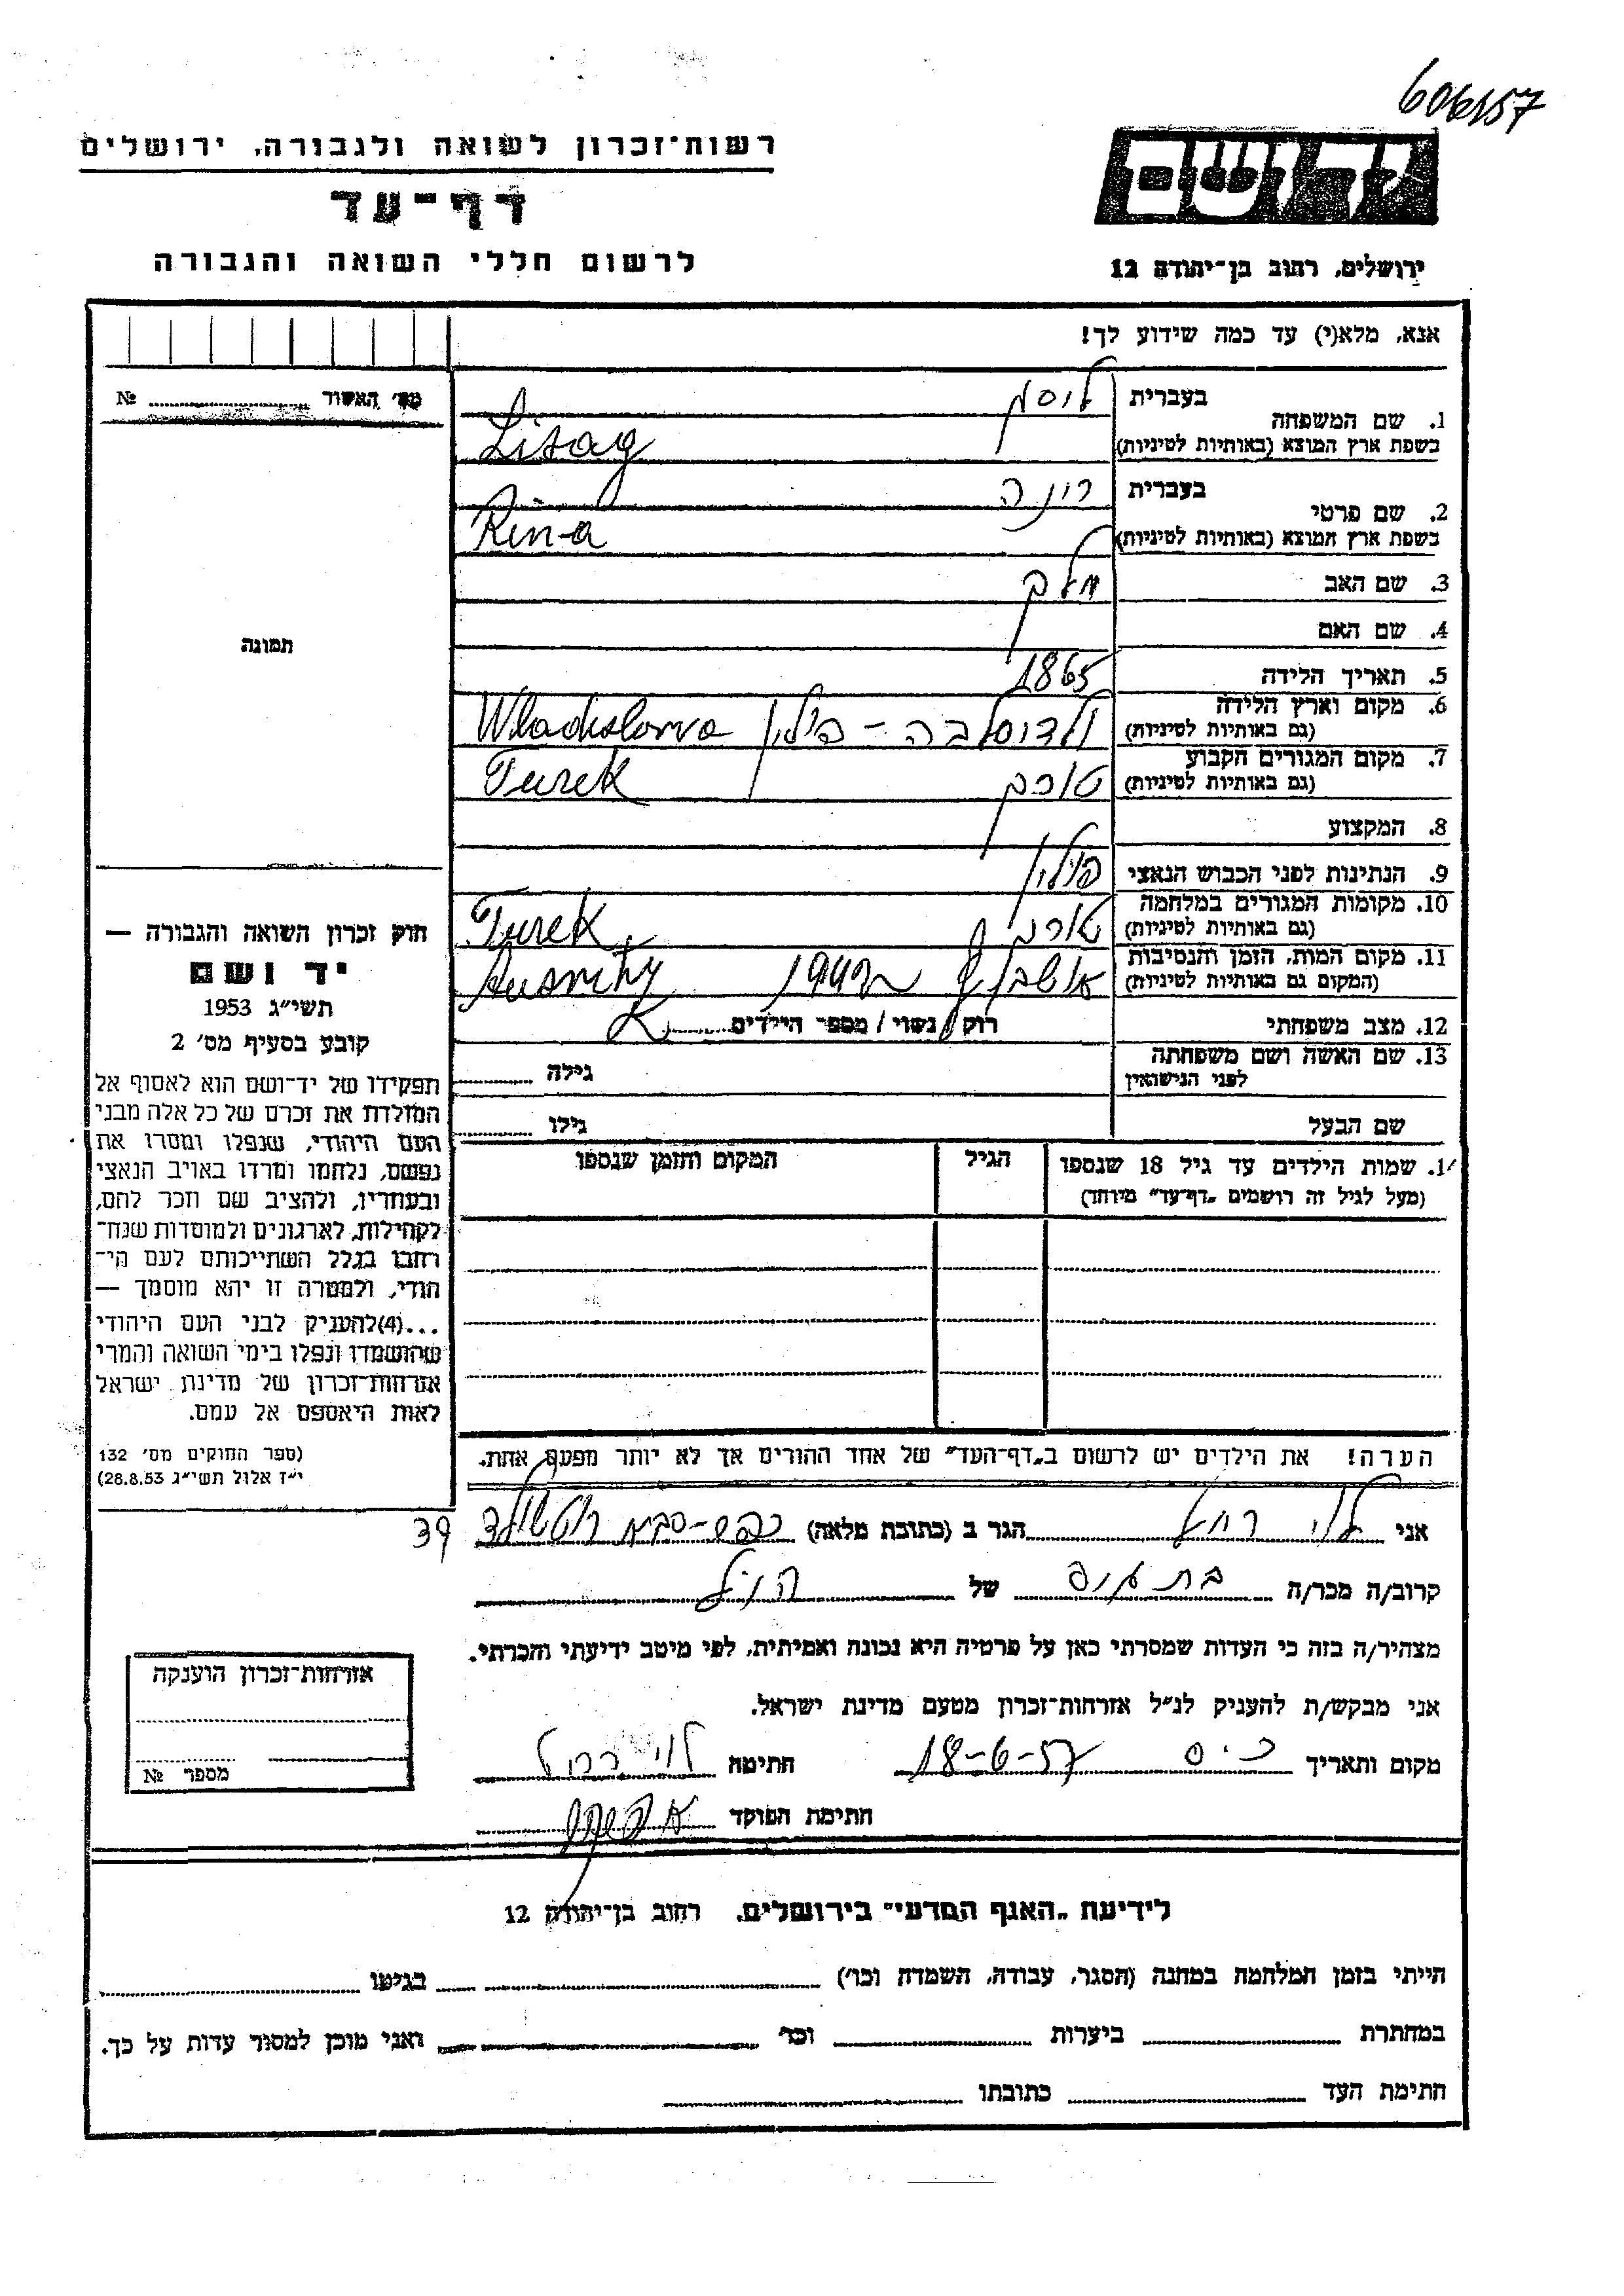 606157
רשות־זכרון לשואה ולגבורה, ירושלים
דף־עד
לרשום חללי השואה והגבורה
יד ושם
ירושלים, רחוב בן־יהודה 12
אנא, מלא(י) עד כמה שידוע לך!
מס׳ האשור № 
1. שם המשפחה
בעברית
בשפת ארץ המוצא (באותיות לטיניות)
Lisag
2. שם פרטי
בעברית רינה
בשפת ארץ המוצא (באותיות לטיניות)
Rina
3. שם האב
4. שם האם
5. תאריך הלידה 1865
6. מקום וארץ הלידה
(גם באותיות לטיניות)
ולדיסלבה - פולין Wladislawa
7. מקום המגורים הקבוע
(גם באותיות לטיניות)
טורק Turek
8. המקצוע
9. הנתינות לפני הכבוש הנאצי פולין
10. מקומות המגורים במלחמה
(גם באותיות לטיניות)
טורק Turek
11. מקום המות, הזמן והנסיבות
(המקום גם באותיות לטיניות)
12. מצב משפחתי רוק / נשוי / מספר הילדים
13. שם האשה ושם משפחתה
לפני הנישואין
גילה
שם הבעל גילו
1. שמות הילדים עד גיל 18 שנספו
(מעל לגיל זה רושמים „דף־עד” מיוחד)
הגיל
המקום והזמן שנספו
הערה! את הילדים יש לרשום ב„דף־העד” של אחד ההורים אך לא יותר מפעם אחת.
תמונה
חוק זכרון השואה והגבורה —
יד ושם
תשי״ג 1953
קובע בסעיף מס׳ 2
תפקידו של יד־ושם הוא לאסוף אל
המולדת את זכרם של כל אלה מבני
העם היהודי, שנפלו ומסרו את
נפשם, נלחמו ומרדו באויב הנאצי
ובעוזריו, ולהציב שם וזכר להם,
לקהילות, לארגונים ולמוסדות שנח־
רחבו בגלל השתייכותם לעם הי־
הודי, ולמטרה זו יהא מוסמך —
...(4)להעניק לבני העם היהודי
שהושמדו ונפלו בימי השואה והמרי
אזרחות־זכרון של מדינת ישראל
לאות היאספם אל עמם.
(ספר החוקים מס׳ 132
י״ז אלול תשי״ג 28.8.53)
אני לוי רחל הגר ב (כתובת מלאה) כפר-סבא רוטשילד 39
קרוב/ה מכר/ה של
מצהיר/ה בזה כי העדות שמסרתי כאן על פרטיה היא נכונה ואמיתית, לפי מיטב ידיעתי והכרתי.
אני מבקש/ת להעניק לנ״ל אזרחות־זכרון מטעם מדינת ישראל.
מקום ותאריך כ.ס 18-6-57 חתימה לוי רחל
חתימת הפוקד
אזרחות־זכרון הוענקה
מספר №
לידיעת „האגף המדעי” בירושלים, רחוב בן־יהודה 12
הייתי בזמן המלחמה במחנה (הסגר, עבודה, השמדה וכו׳) בגיטו
במחתרת ביערות וכו׳ ואני מוכן למסור עדות על כך.
חתימת העד כתובתו